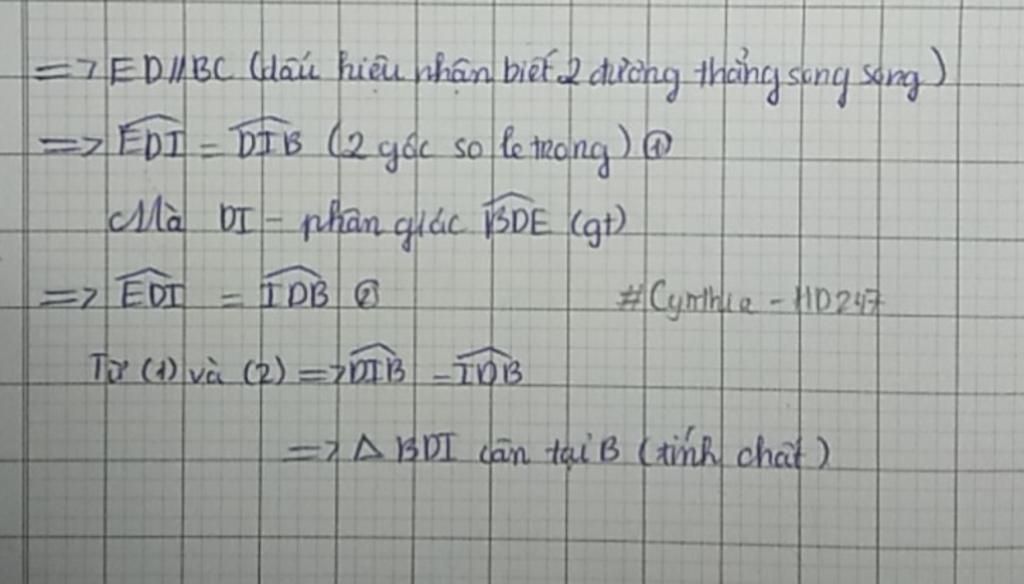 => ED//BC (dấu hiệu nhận biết 2 đường thẳng song song)
=> \widehat{EDI} = \widehat{DIB} (2 góc so le trong) ①
Mà DI - phân giác \widehat{BDE} (gt)
=> \widehat{EDI} = \widehat{IDB} ②
#Cynthia - HD247
Từ (1) và (2) => \widehat{DIB} = \widehat{IDB}
=> Δ BDI cân tại B (tính chất)